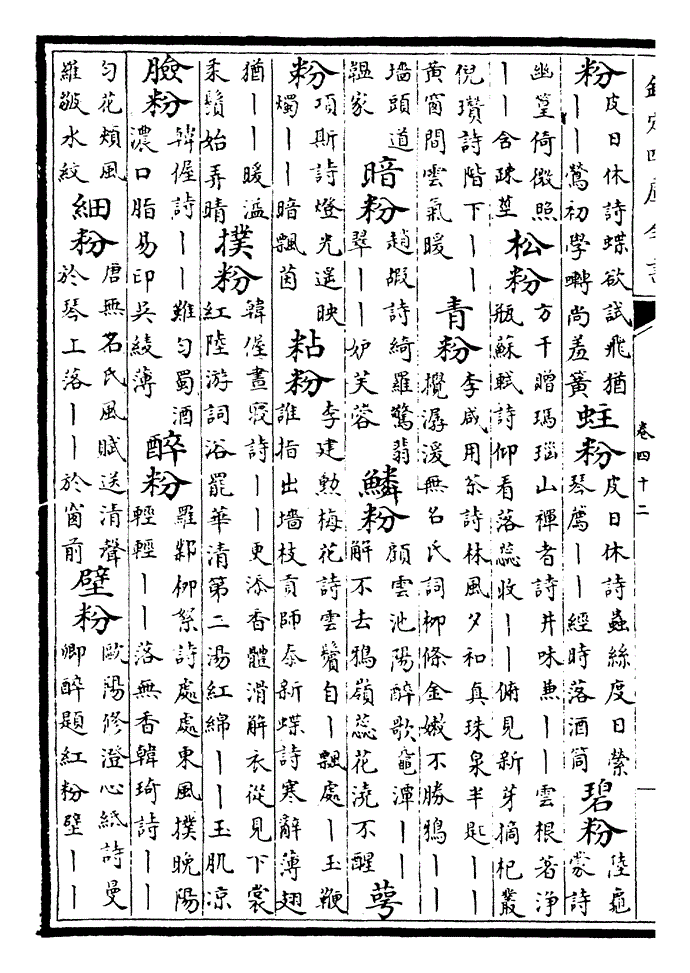 欽定四庫全書
卷四十二
粉
皮日休詩蝶欲試飛猶
――鶯初學囀尚羞簧
蛀粉
皮日休詩蟲絲度日縈
琴薦――經時落酒筒
碧粉
陸龜
蒙詩
幽篁倚微照
――含疎莖
松粉
方干贈瑪瑙山禪者詩井味兼――雲根著淨
瓶蘇軾詩仰看落蕊收――俯見新芽摘杞叢
倪瓚詩階下――
黄窗間雲氣暖
青粉
李咸用茶詩林風夕和真珠泉半匙――
攪潺湲無名氏詞柳條金嫩不勝鴉――
墻頭道
韞家
暗粉
趙嘏詩綺羅驚翡
翠――妒芙蓉
鱗粉
顧雲池陽醉歌黿潭――
解不去鴉嶺蕊花澆不醒
萼
粉
項斯詩燈光遥映
燭――暗飄茵
粘粉
李建勲梅花詩雲鬢自―飄處―玉鞭
誰指出墻枝貢師泰新蝶詩寒辭薄翅
猶――暖溫
柔鬚始弄晴
撲粉
韓偓晝寢詩――更添香體滑解衣從見下裳
紅陸游詞浴罷華清第二湯紅綿――玉肌凉
臉粉
韓偓詩――難匀蜀酒
濃口脂易印吳綾薄
醉粉
羅鄴柳絮詩處處東風撲晚陽
輕輕――落無香韓琦詩――
匀花頰風
羅皺水紋
細粉
唐無名氏風賦送清聲
於琴上落――於窗前
壁粉
歐陽修澄心紙詩曼
卿醉題紅粉壁――